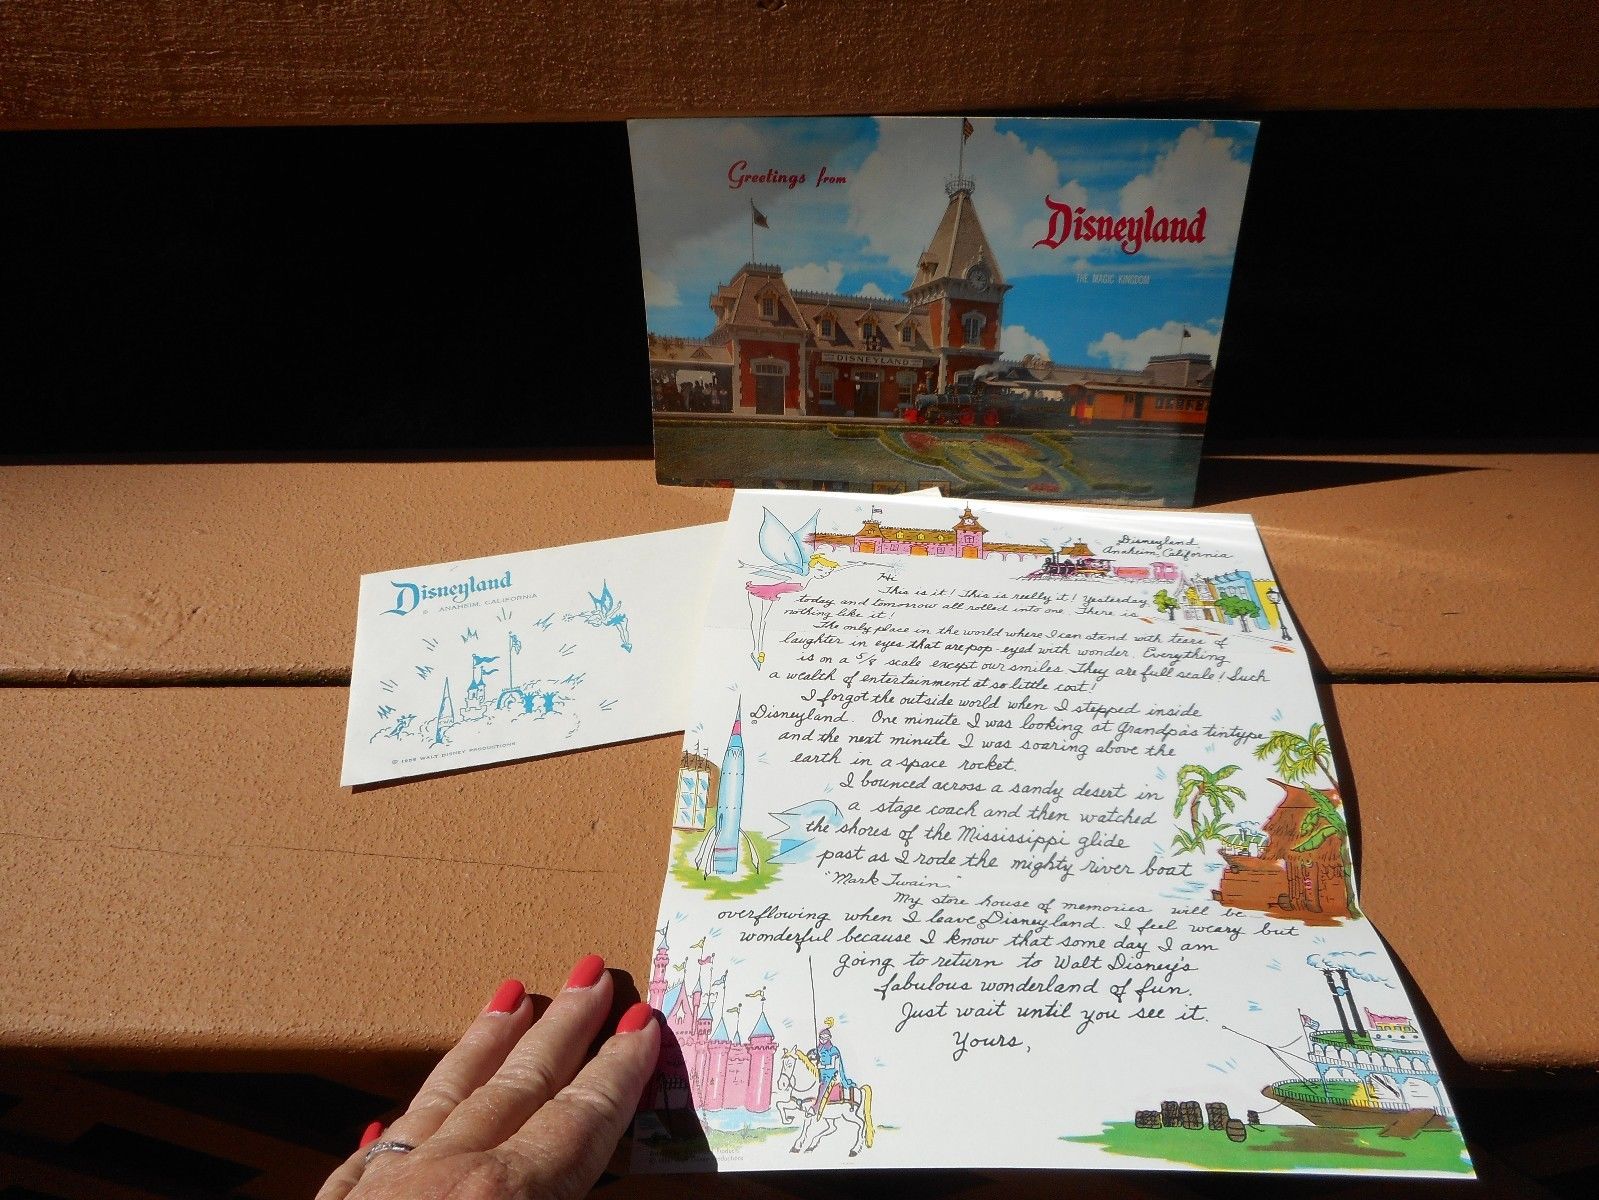 Greetings from
Disneyland
THE MAGIC KINGDOM
DISNEYLAND
Disneyland
® ANAHEIM, CALIFORNIA
© 1958 WALT DISNEY PRODUCTIONS
Disneyland
Anaheim, California
Hi
This is it! This is really it! Yesterday,
today and tomorrow all rolled into one. There is
nothing like it!
The only place in the world where I can stand with tears of
laughter in eyes that are pop-eyed with wonder. Everything
is on a 5/8 scale except our smiles. They are full scale! Such
a wealth of entertainment at so little cost!
I forgot the outside world when I stepped inside
Disneyland. One minute I was looking at Grandpa's tintype
and the next minute I was soaring above the
earth in a space rocket.
I bounced across a sandy desert in
a stage coach and then watched
the shores of the Mississippi glide
past as I rode the mighty river boat
"Mark Twain."
My store house of memories will be
overflowing when I leave Disneyland. I feel weary but
wonderful because I know that some day I am
going to return to Walt Disney's
fabulous wonderland of fun.
Just wait until you see it.
Yours,